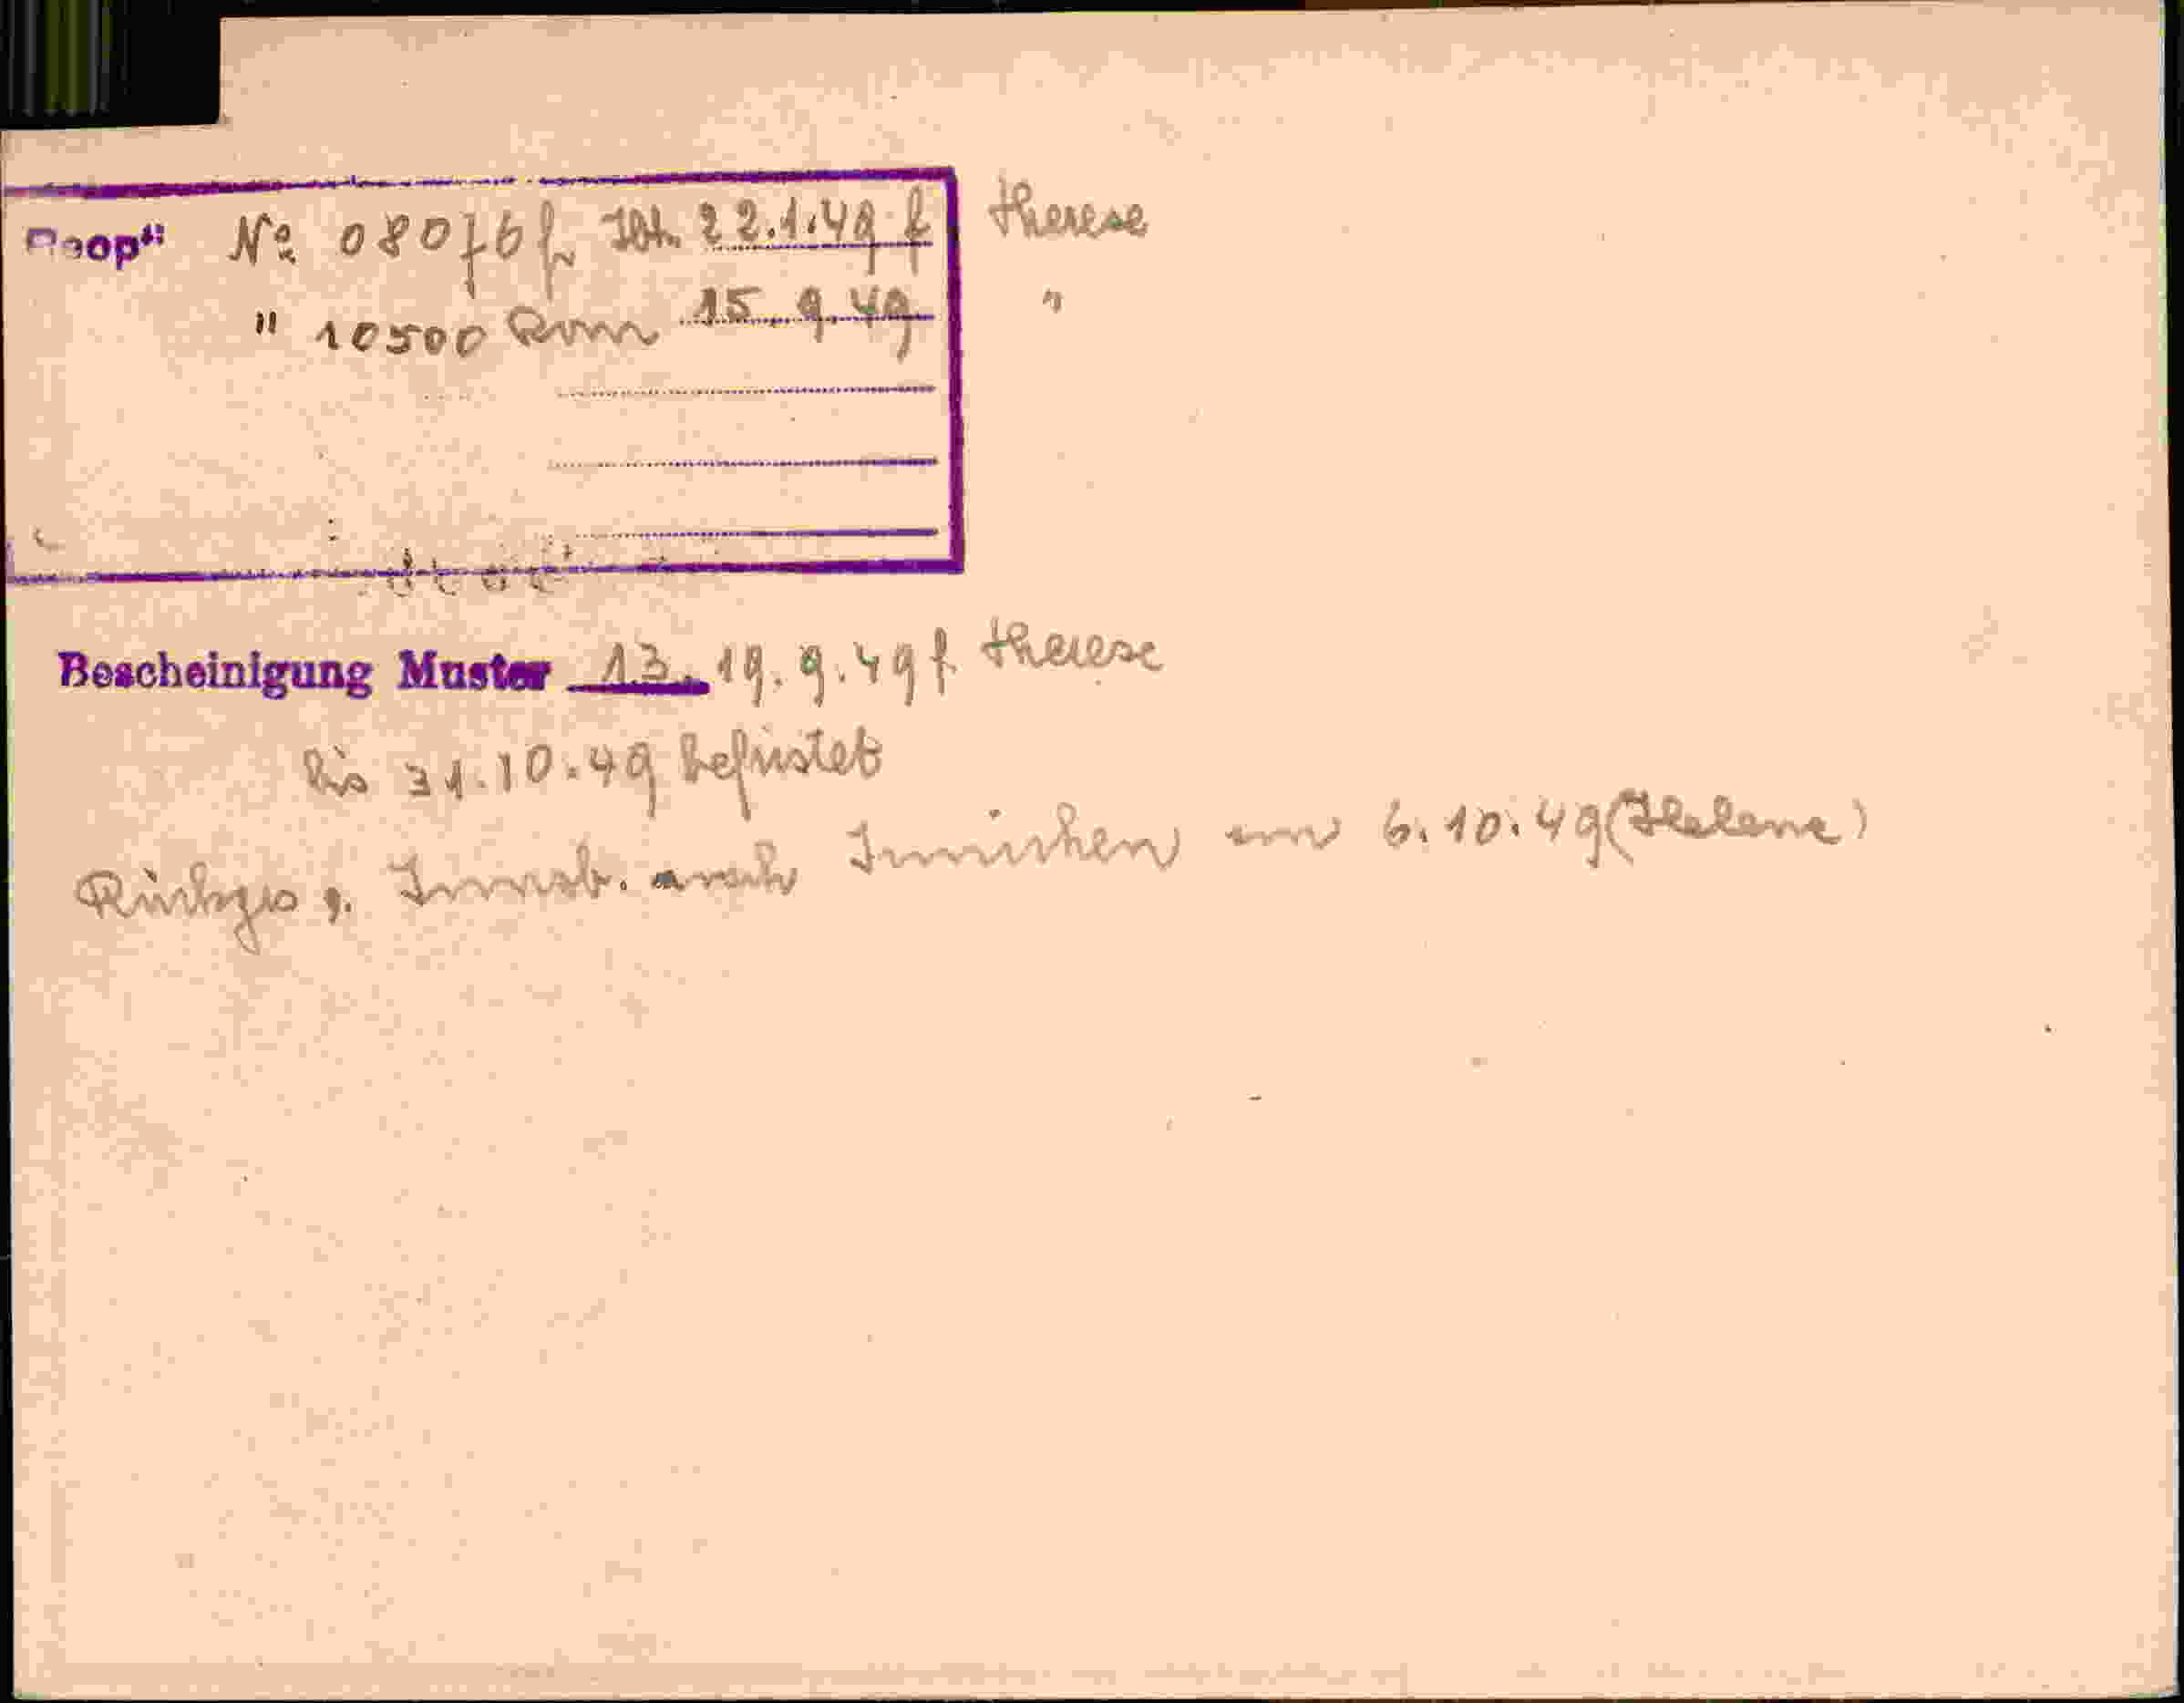 Reop" № 08076 f. Ibk. 22.1.49 f Therese
" 10500 Rom 15.9.49 "
Bescheinigung Muster 13. 19.9.49 f Therese
bis 31.10.49 befristet
Innsb. nach Innichen am 6.10.49 (Helene)